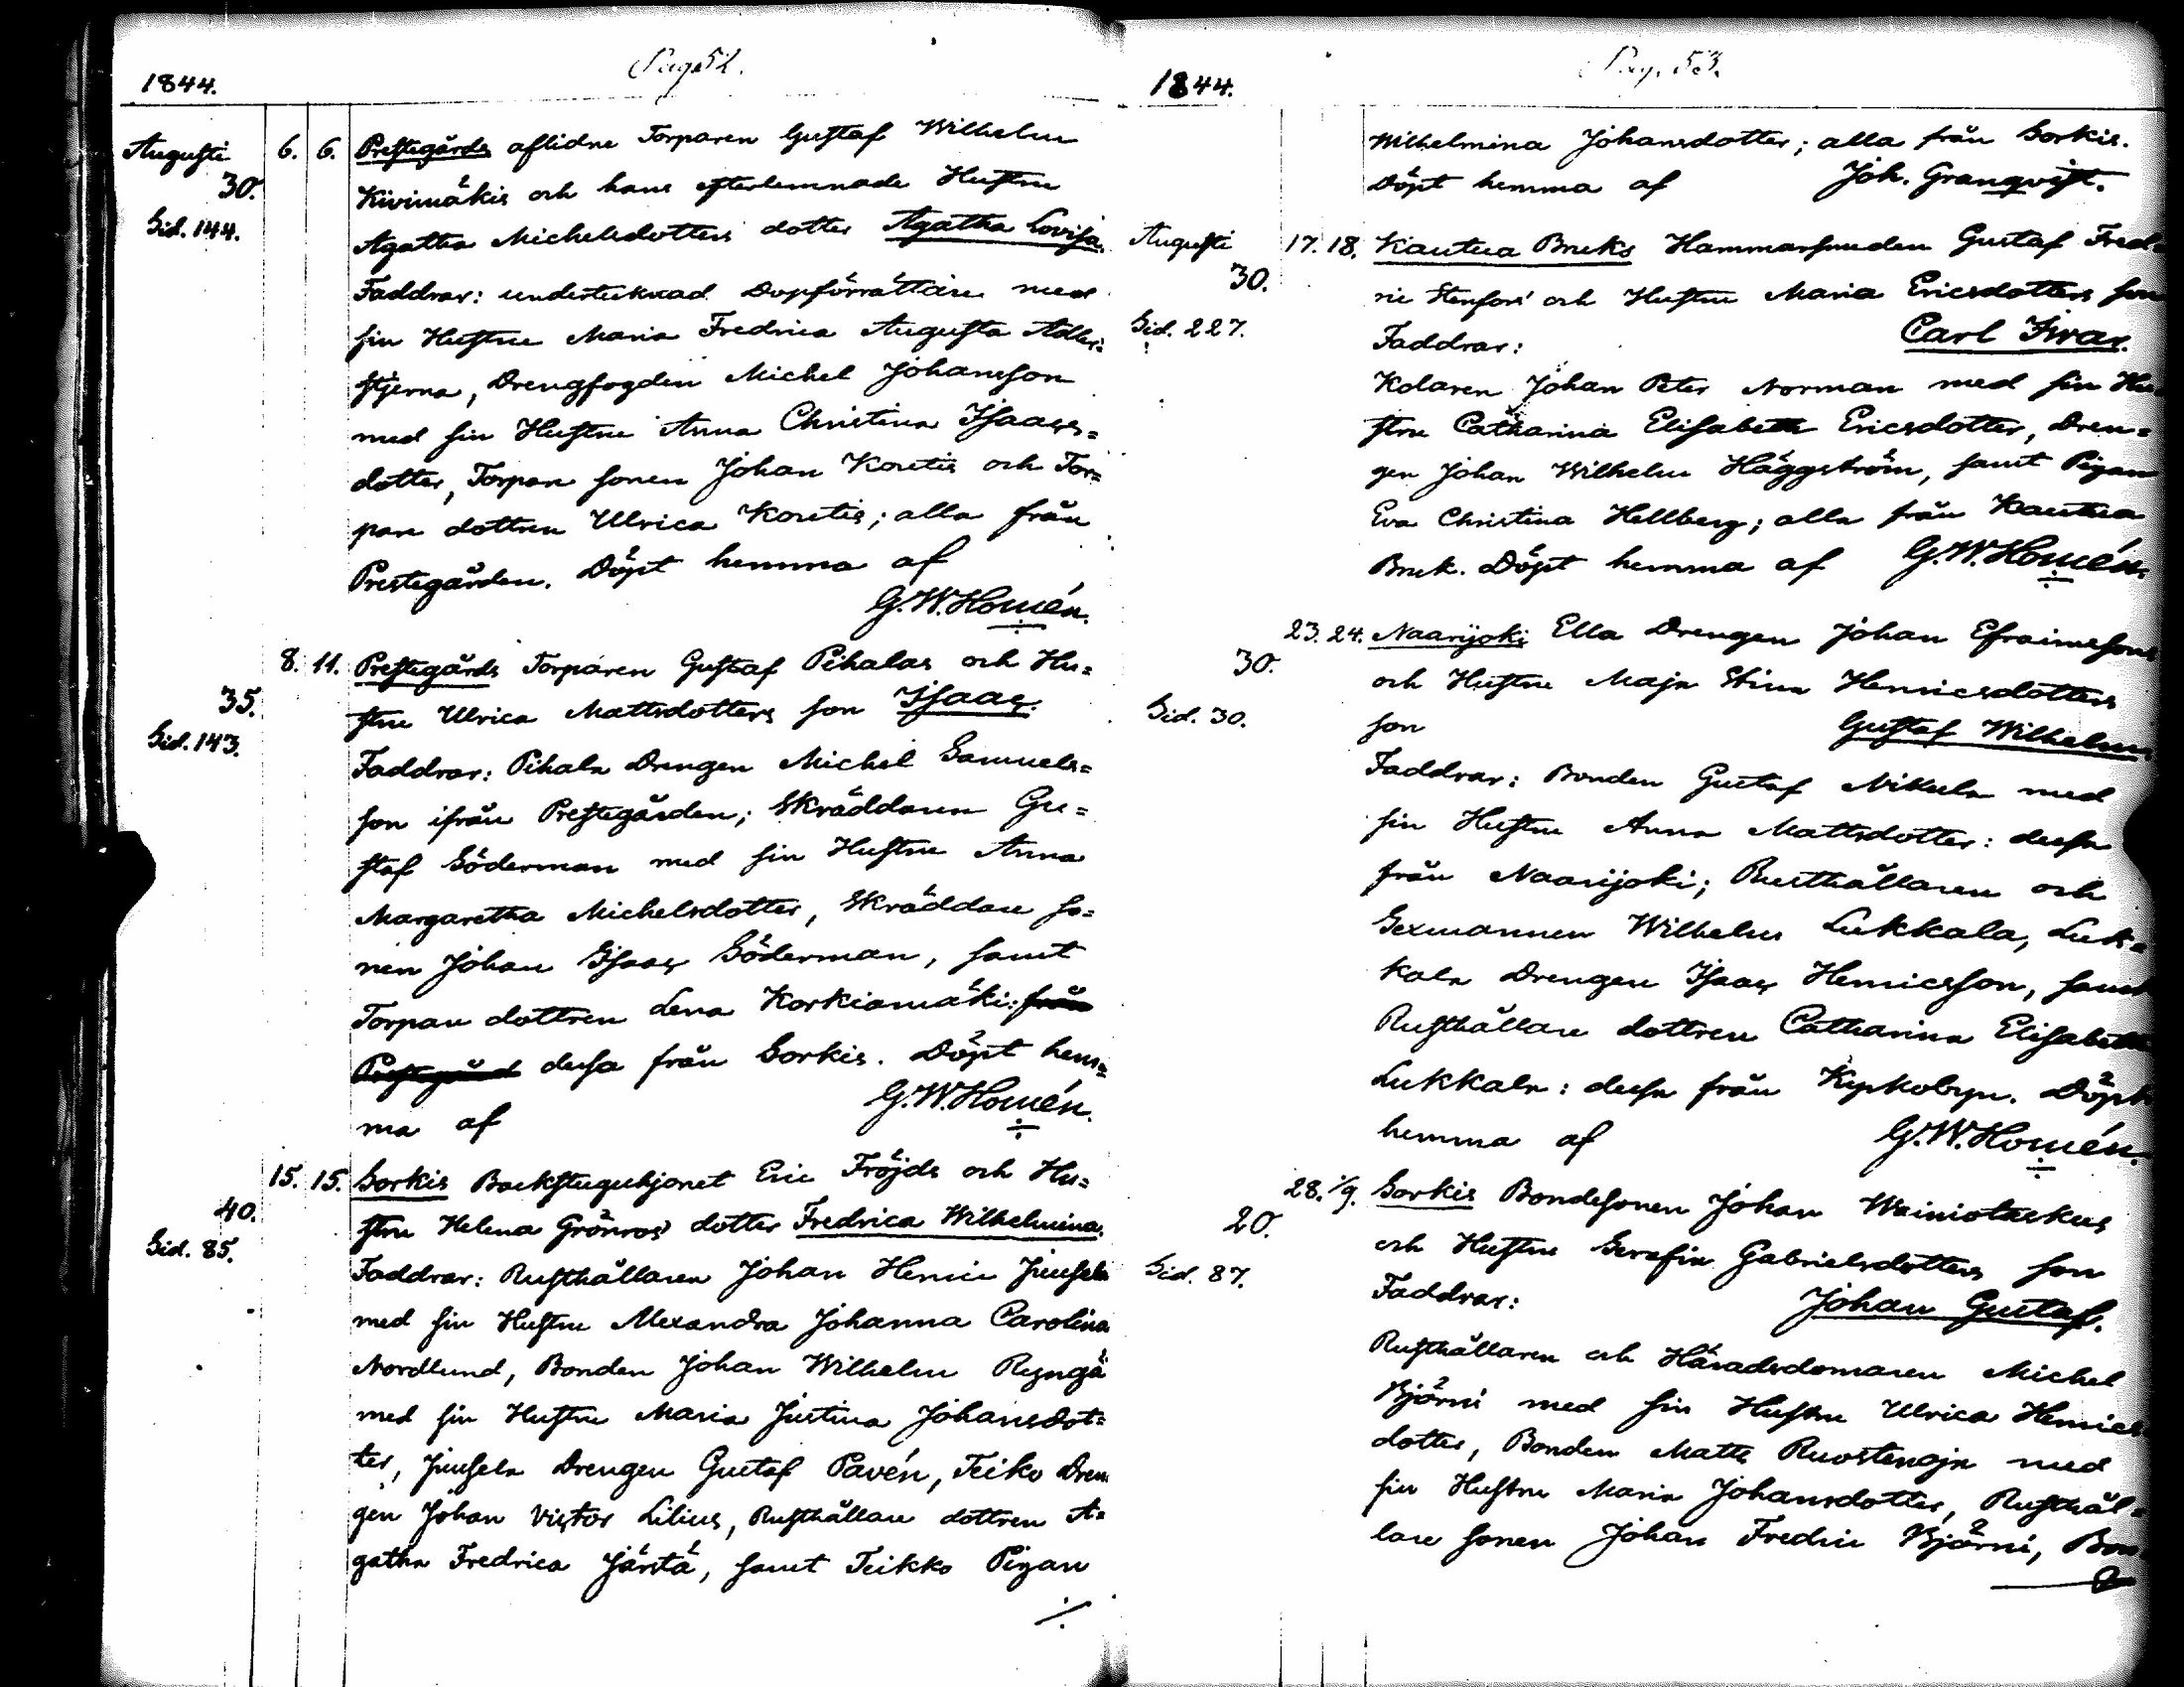 Pag. 52.
1844.
Augusti 6. 6. Prestegårds aflidne Torparen Gustaf Wilhelm
30. Kivimäkis och hans efterlemnade Hustru
Sid. 144. Agatha Michelsdotters dotter Agatha Lovisa.
Faddrar: undertecknad Dopförrättare med
sin Hustru Maria Fredrica Augusta Adler=
stjerna, Drengfogden Michel Johansson
med sin Hustru Anna Christina Isaacs=
dotter, Torpare sonen Johan Koretis och Tor=
pare dottren Ulrica Koretis; alla från
Prestegården. Döpt hemma af
G. W. Homén.
8. 11. Prestegårds Torparen Gustaf Pihalas och Hu=
35. stru Ulrica Mattsdotters son Isaac.
Sid. 143. Faddrar: Pihala Drengen Michel Samuels=
son ifrån Prestegården; Skräddaren Gu=
staf Söderman med sin Hustru Anna
Margaretha Michelsdotter, Skräddare so=
nen Johan Isaac Söderman, samt
Torpare dottren Lena Korkiamäki: från
Prestegård dessa från Sorkis. Döpt hem=
ma af G. W. Homén.
15. 15. Sorkis Backstuguhjonet Eric Fröjds och Hu=
40. stru Helena Grönroos' dotter Fredrica Wilhelmina.
Sid. 85. Faddrar: Rusthållaren Johan Henric Juusela
med sin Hustru Alexandra Johanna Carolina
Nordlund, Bonden Johan Wilhelm Ryngä
med sin Hustru Maria Justina Johansdot=
ter, Juusela Drengen Gustaf Pavén, Teiko Dren
gen Johan Victor Lilius, Rusthållare dottren A=
gatha Fredrica Järstä, samt Teikko Pigan
./.
Pag. 53.
1844.
Wilhelmina Johansdotter; alla från Sorkis.
Döpt hemma af Joh. Granqvist.
Augusti 17. 18. Kautua Bruks Hammarsmeden Gustaf Fred=
30. ric Stenfors' och Hustru Maria Ericsdotters son
Sid. 227. Faddrar: Carl Ivar.
Kolaren Johan Peter Norman med sin Hu=
stru Catharina Elisabeth Ericsdotter, Dren=
gen Johan Wilhelm Häggström, samt Pigan
Eva Christina Hellberg; alla från Kautua
Bruk. Döpt hemma af G. W. Homén.
23. 24. Naarijoki Ella Drengen Johan Efraimssons
30. och Hustru Maja Stina Henricsdotters
Sid. 30. son Gustaf Wilhelm.
Faddrar: Bonden Gustaf Nikula med
sin Hustru Anna Mattsdotter: dessa
från Naarijoki; Rusthållaren och
Sexmannen Wilhelm Lukkala, Luk=
kala Drengen Isaac Henricsson, samt
Rusthållare dottren Catharina Elisabeth
Lukkala: dessa från Kepkobyn. Döpt
hemma af G. W. Homén.
28. 1/9. Sorkis Bondesonen Johan Wainiotaskus
20. och Hustru Serafia Gabrielsdotters son
Sid. 87. Faddrar: Johan Gustaf.
Rusthållaren och Häradsdomaren Michel
Björni med sin Hustru Ulrica Henrics
dotter, Bonden Matts Ruostenoja med
sin Hustru Maria Johansdotter, Rusthål=
lare sonen Johan Fredric Björni, Bon